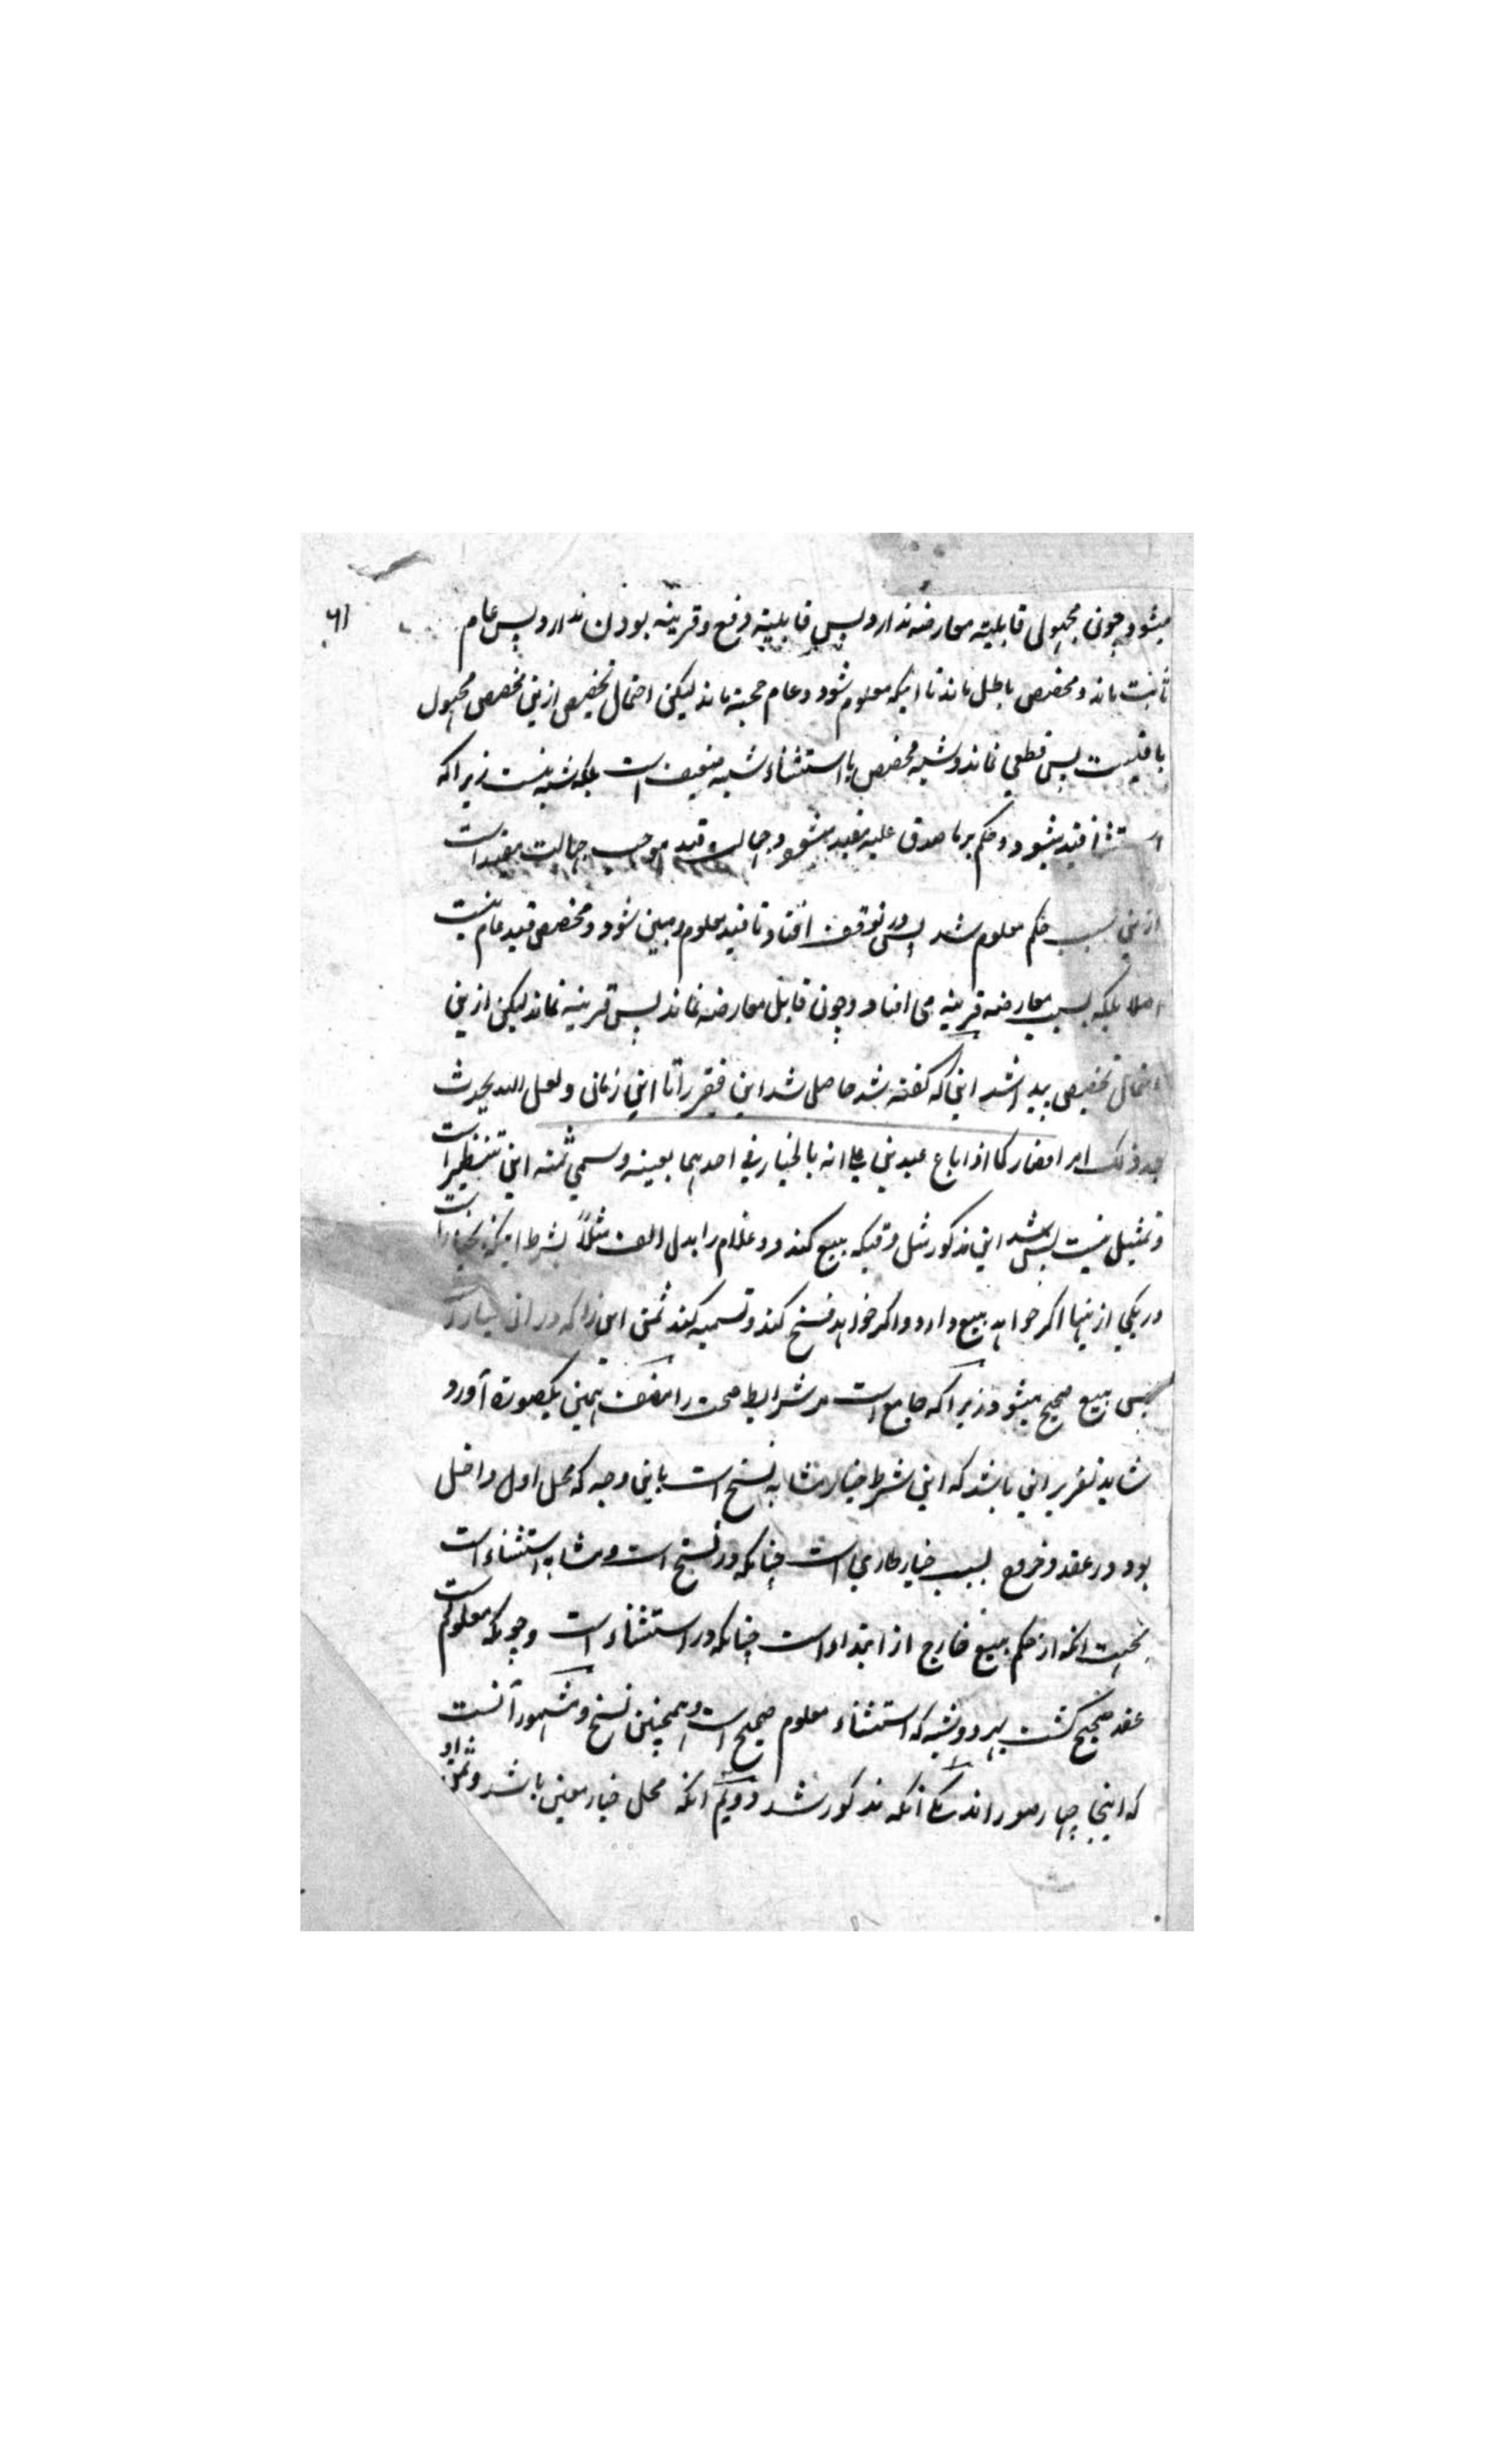 ۶۱
میشود چون مجهولی قابلیته معارضه ندارد پس قابلیته رفع و قرینه بودن ندارد پس عام
ثابت ماند و مخصص باطل ماند تا اینکه معلوم شود و عام حجته ماند لیکن احتمال تخصیص ازین مخصص مجهول
باقیست پس قطعی نماند و شبه مخصص با استثناء شبه ضعیف است بلکه شبه نیست زیراکه
استثنا قید میشود و حکم بر ما صدق علیه مقید میشود و جهالت قید موجب جهالت مقید است
ازین سبب حکم معلوم نشد پس در توقف افتاد تا قید معلوم و مبین شود و مخصص قید عام نیست
اصلا بلکه بسبب معارضه قرینه می افتاد و چون قابل معارضه نماند پس قرینه نماند لیکن ازین
احتمال تخصیص پیدا شد این که گفته شد حاصل شد این فقیر را تا این زمان و لعل الله یحدث
بعد ذلک امرا فصار کما اذا باع عبدین علی انه بالخیار فی احدهما بعینه و سمی ثمنه این تنظیر است
و تمثیل نیست پس شد این مذکور مثل وقتیکه بیع کند دو غلام را بدل الف مثلاً بشرط اینکه بخیار است
در یکی ازینها اگر خواهد بیع دارد و اگر خواهد فسخ کند و تسمیه کند ثمن این را که در ان خیار
پس بیع صحیح میشود زیراکه جامع است مر شرایط صحت را مصنف همین یکصورة آورد
شاید تقریر این باشد که این شرط خیار مشابه نسخ است باین وجه که محل اول داخل
بود در عقد و خروج بسبب خیار طاری است چنانکه در نسخ است و مشابه استثناء است
بحیث انکه از حکم بیع خارج از ابتداء است چنانکه در استثناء است و چونکه معلوم است
عقد صحیح گشت بهر دو شبه که استثناء معلوم صحیح است و همچنین نسخ و مشهور آنست
که اینجا چهار صور اند یکی آنکه مذکور شد دویم آنکه محل خیار معین باشد و ثمن او